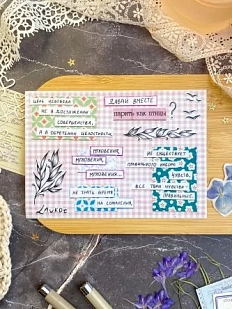 ЦЕЛЬ ЧЕЛОВЕКА
НЕ В ДОСТИЖЕНИИ
СОВЕРШЕНСТВА,
А В ОБРЕТЕНИИ ЦЕЛОСТНОСТИ
ДАВАЙ ВМЕСТЕ
ПАРИТЬ КАК ПТИЦЫ
?
МГНОВЕНИЯ,
МГНОВЕНИЯ,
МГНОВЕНИЯ...
НЕ ТРАТЬ ВРЕМЯ
НА СОМНЕНИЯ.
НЕ СУЩЕСТВУЕТ
ПРАВИЛЬНОГО
ЧУВСТВ.
ВСЕ ТВОИ ЧУВСТВА
ПРАВИЛЬНЫЕ.